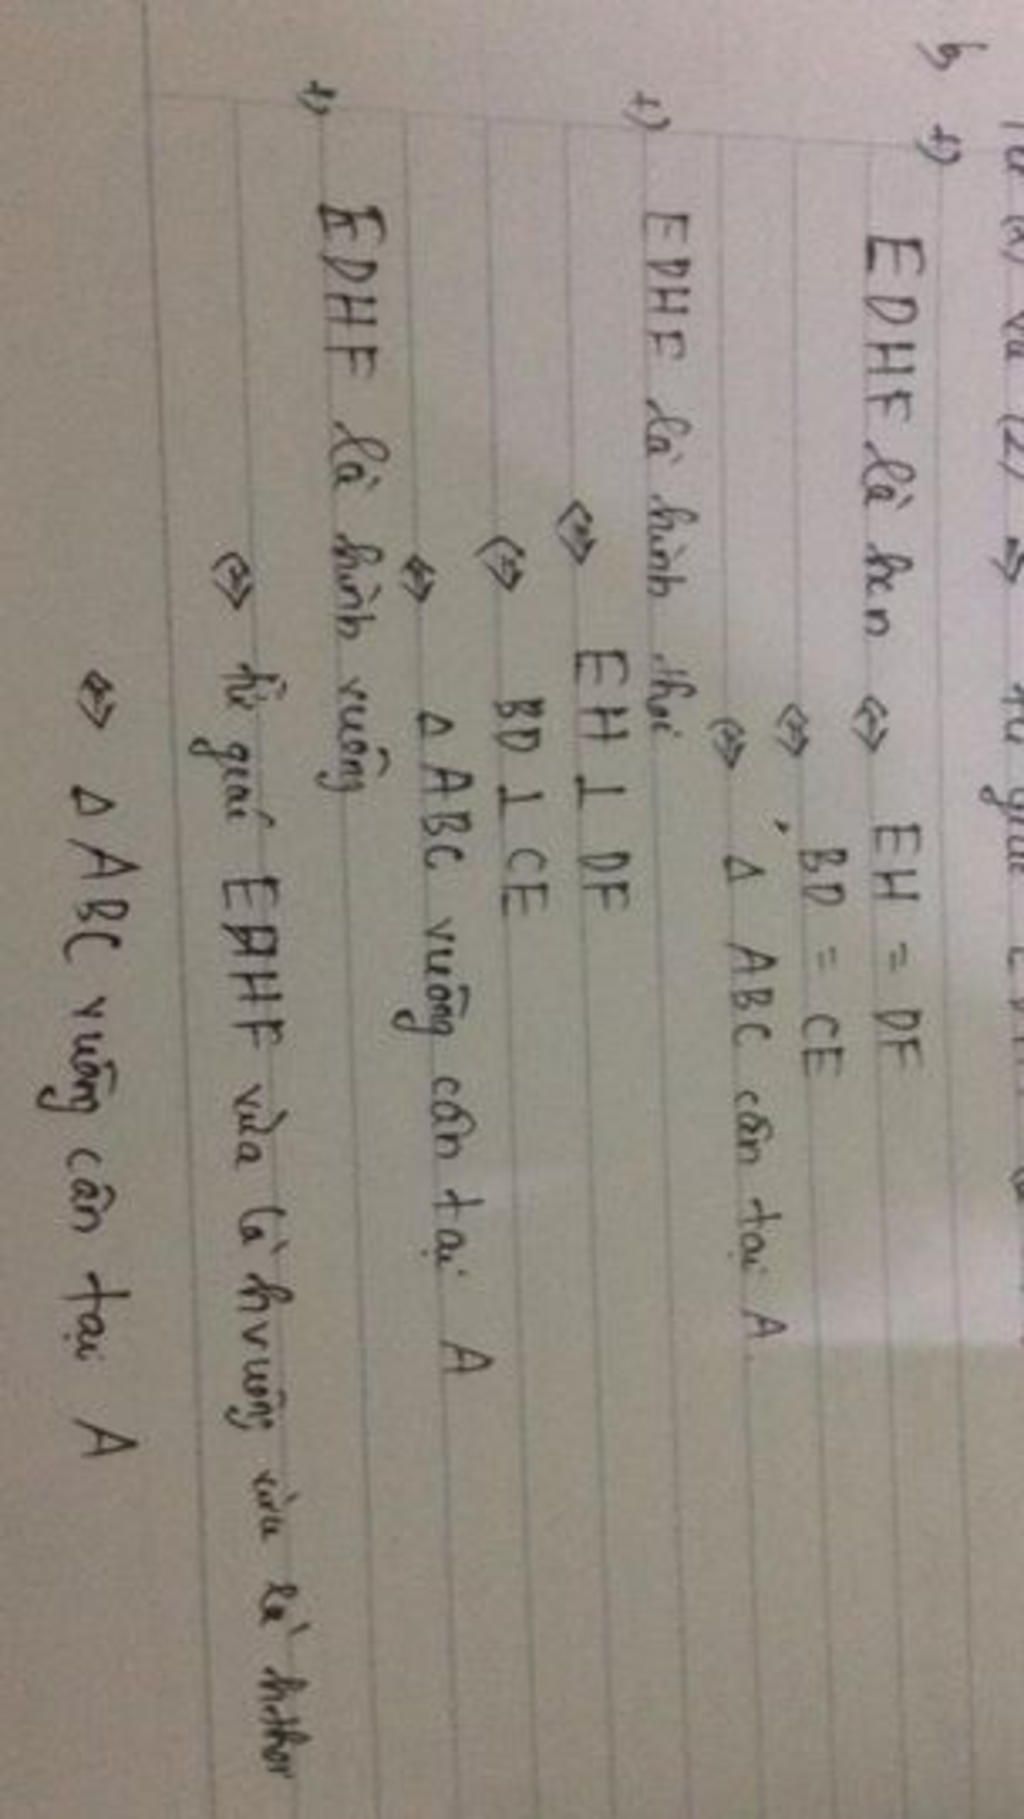 Từ (1) và (2) => tứ giác EDHF là
b, +) EDHF là hcn <=> EH = DF
<=> BD = CE
<=> Δ ABC cân tại A.
+) EDHF là hình thoi
<=> EH ⊥ DF
<=> BD ⊥ CE
<=> Δ ABC vuông cân tại A
+) EDHF là hình vuông
<=> tứ giác EDHF vừa là hvuông vừa là h.thoi
<=> Δ ABC vuông cân tại A